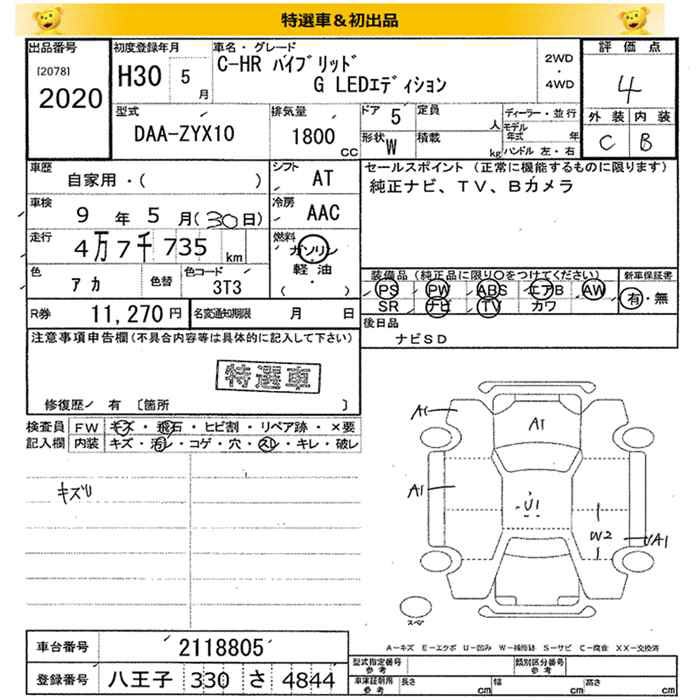 特選車＆初出品
出品番号
[2078]
2020
初度登録年月
H30 5月
車名・グレード
C-HR ハイブリッド
G LEDエディション
2WD
・
4WD
評価点
4
外装 内装
C B
型式
DAA-ZYX10
排気量
1800 CC
ドア 5
形状 W
定員 人
積載 kg
ディーラー・並行
モデル年式 年
ハンドル 左・右
車歴
自家用・( )
シフト
AT
車検
9年 5月(30日)
冷房
AAC
走行
4万7千735km
燃料
ガソリン
軽油
( ・ )
色
アカ
色替
色コード
3T3
R券 11,270円
名変通知期限 月 日
セールスポイント (正常に機能するものに限ります)
純正ナビ、TV、Bカメラ
装備品 (純正品に限り○をつけてください)
PS PW ABS エアB AW
SR ナビ TV カワ
新車保証書
有・無
後日品
ナビSD
注意事項申告欄 (不具合内容等は具体的に記入して下さい)
特選車
修復歴/ 有 [箇所 ]
検査員記入欄
FW キズ・飛石・ヒビ割・リペア跡・×要
内装 キズ・汚レ・コゲ・穴・スレ・キレ・破レ
A1
A1
A1
U1
W2
A1
スペア
A-キズ E-エクボ U-凹み W-補修跡 S-サビ C-腐食 XX-交換済
車台番号 2118805
登録番号 八王子 330 さ 4844
型式指定番号
参考
類別区分番号
参考
車庫証明用
参考
長さ cm
幅 cm
高さ cm